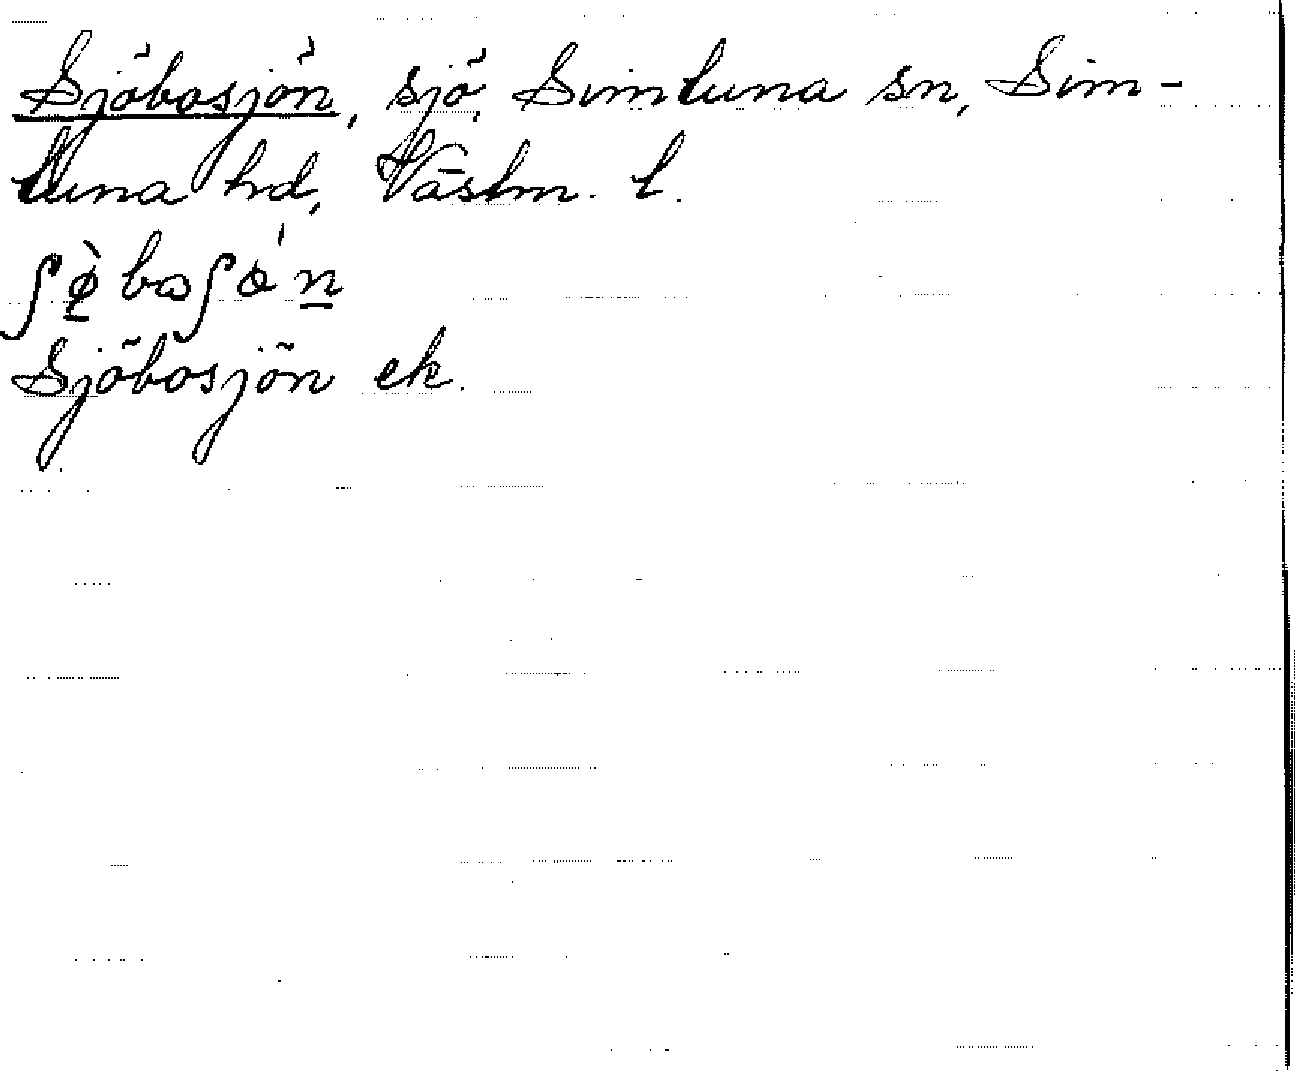 Sjöbosjön, sjö, Simtuna sn, Sim-
tuna hd, Västm. l.
Sjöbosjön ek.